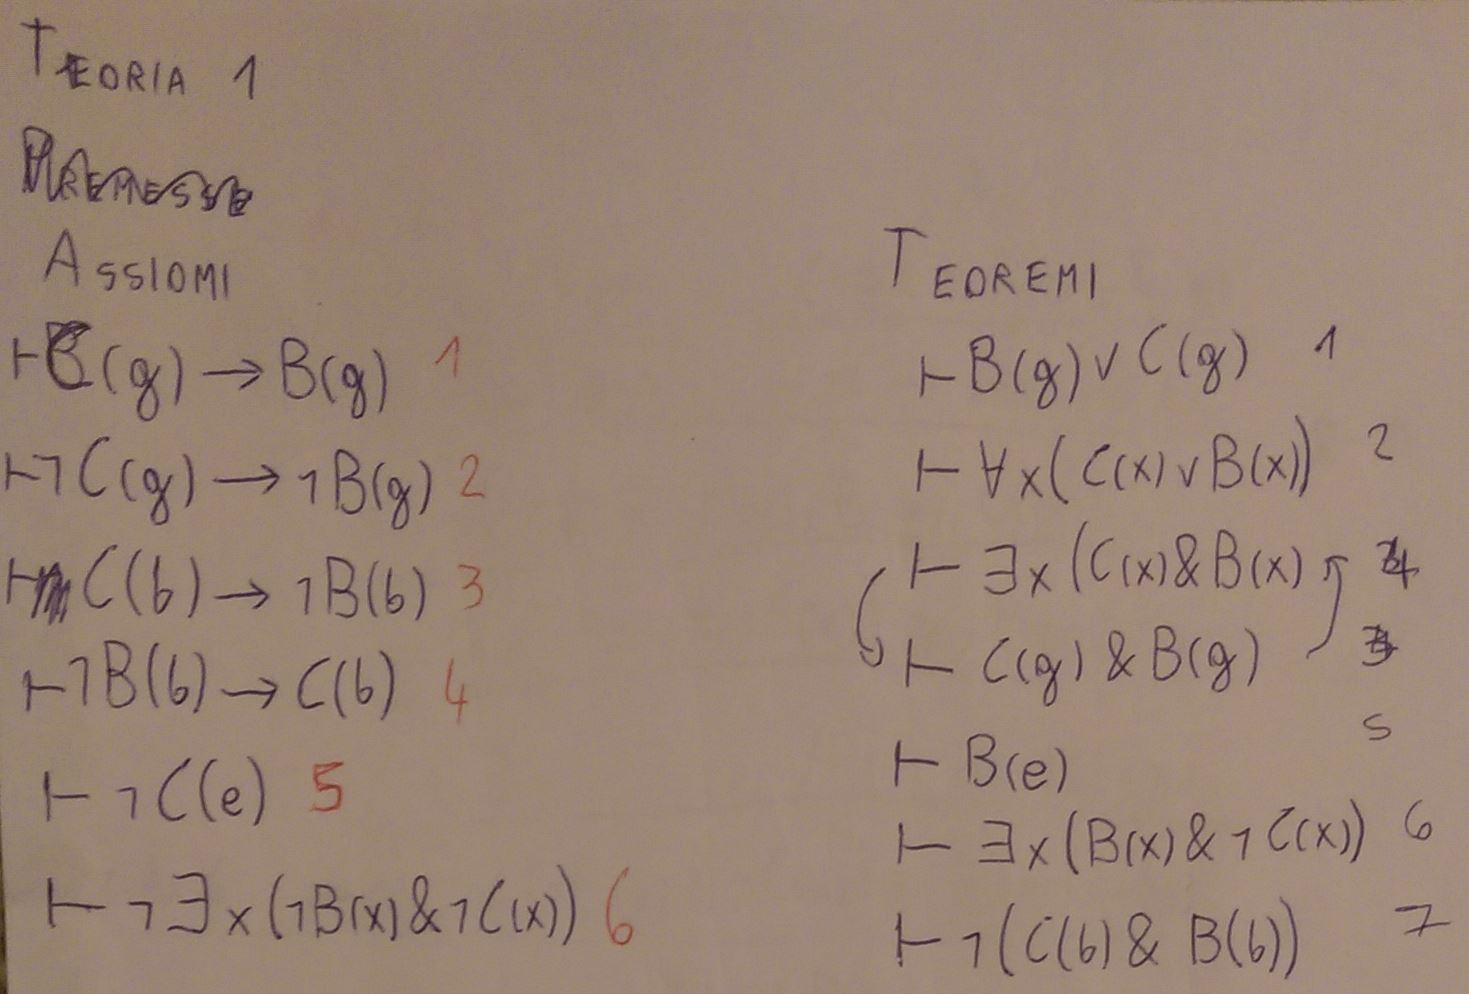 TEORIA 1
PREMESSE
ASSIOMI
⊢C(g)→B(g) 1
⊢¬C(g)→¬B(g) 2
⊢C(b)→¬B(b) 3
⊢¬B(b)→C(b) 4
⊢¬C(e) 5
⊢¬∃x(¬B(x)&¬C(x)) 6
TEOREMI
⊢B(g)∨C(g) 1
⊢∀x(C(x)∨B(x)) 2
⊢∃x(C(x)&B(x) 4
⊢C(g)&B(g) 3
⊢B(e) 5
⊢∃x(B(x)&¬C(x)) 6
⊢¬(C(b)&B(b)) 7